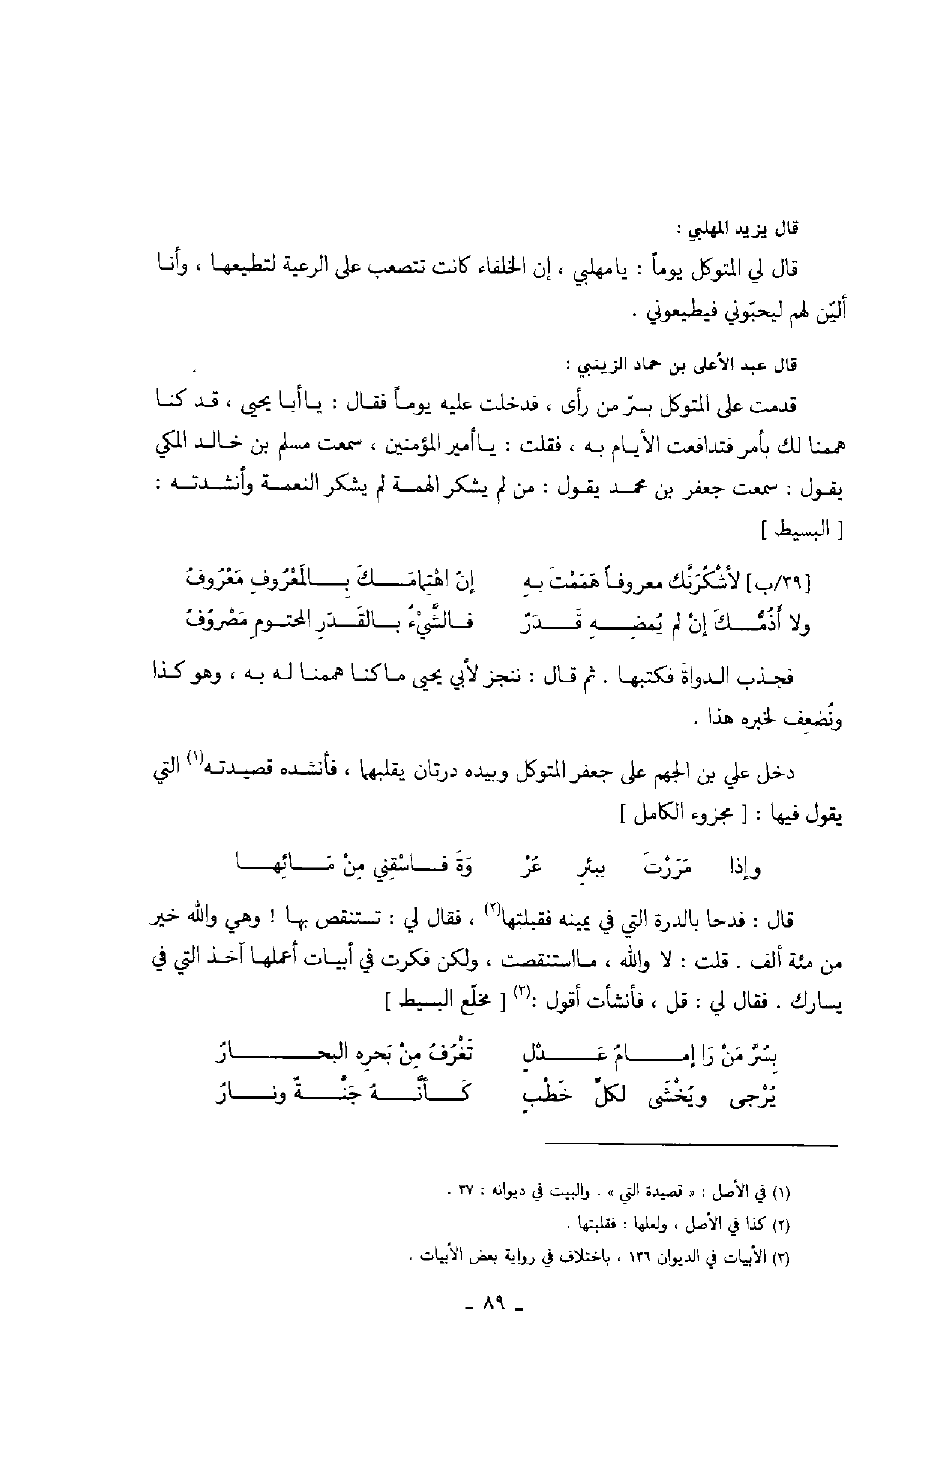 قال يزيد المهلبي :
قال لي المتوكل يوماً : يامهلبي ، إن الخلفاء كانت تتصعب على الرعية لتطيعها ، وأنا
أليّن لهم ليحبّوني فيطيعوني .
قال عبد الأعلى بن حماد الزينبي :
قدمت على المتوكل بسرّ من رأى ، فدخلت عليه يوماً فقال : ياأبا يحيى ، قد كنا
هممنا لك بأمر فتدافعت الأيام به ، فقلت : ياأمير المؤمنين ، سمعت مسلم بن خالد المكي
يقول : سمعت جعفر بن محمد يقول : من لم يشكر الهمة لم يشكر النعمة وأنشدته :
[ البسيط ]
[٣٩/ب] لأشكُرَنَّك معروفاً هَمَمْتَ بهِ إنّ اهْتِمامَكَ بالمَعْرُوفِ مَعْرُوفُ
ولا أَذُمُّكَ إنْ لم يُمضِهِ قَدَرٌ فالشَّيْءُ بالقَدَرِ المحتومِ مَصْروفُ
فجذب الدواة فكتبها . ثم قال : ننجز لأبي يحيى ماكنا هممنا له به ، وهو كذا
ونُضعِف لخبره هذا .
دخل علي بن الجهم على جعفر المتوكل وبيده درتان يقلبها ، فأنشده قصيدته(١) التي
يقول فيها : [ مجزوء الكامل ]
وإذا مَرَرْتَ ببئرِ عُرْ وَةَ فاسْقِني مِنْ مَائِها
قال : فدحا بالدرة التي في يمينه فقبلتها(٢) ، فقال لي : تستنقص بها ! وهي والله خير
من مئة ألف . قلت : لا والله ، مااستنقصت ، ولكن فكرت في أبيات أعملها آخذ التي في
يسارك . فقال لي : قل ، فأنشأت أقول :(٣) [ مخلّع البسيط ]
بسُرَّ مَنْ رَا إمامُ عَدْلٍ تَغْرُفُ مِنْ بَحرِه البحارُ
يُرْجى ويُخْشَى لكلِّ خَطْبٍ كَأنَّهُ جَنَّةٌ ونارُ
(١) في الأصل : « قصيدة التي » . والبيت في ديوانه : ٣٧ .
(٢) كذا في الأصل ، ولعلها : فقلبتها .
(٣) الأبيات في الديوان ١٣٦ ، باختلاف في رواية بعض الأبيات .
- ٨٩ -